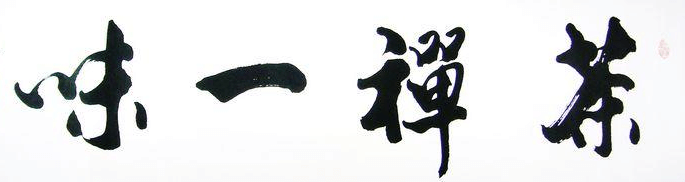 茶禪一味